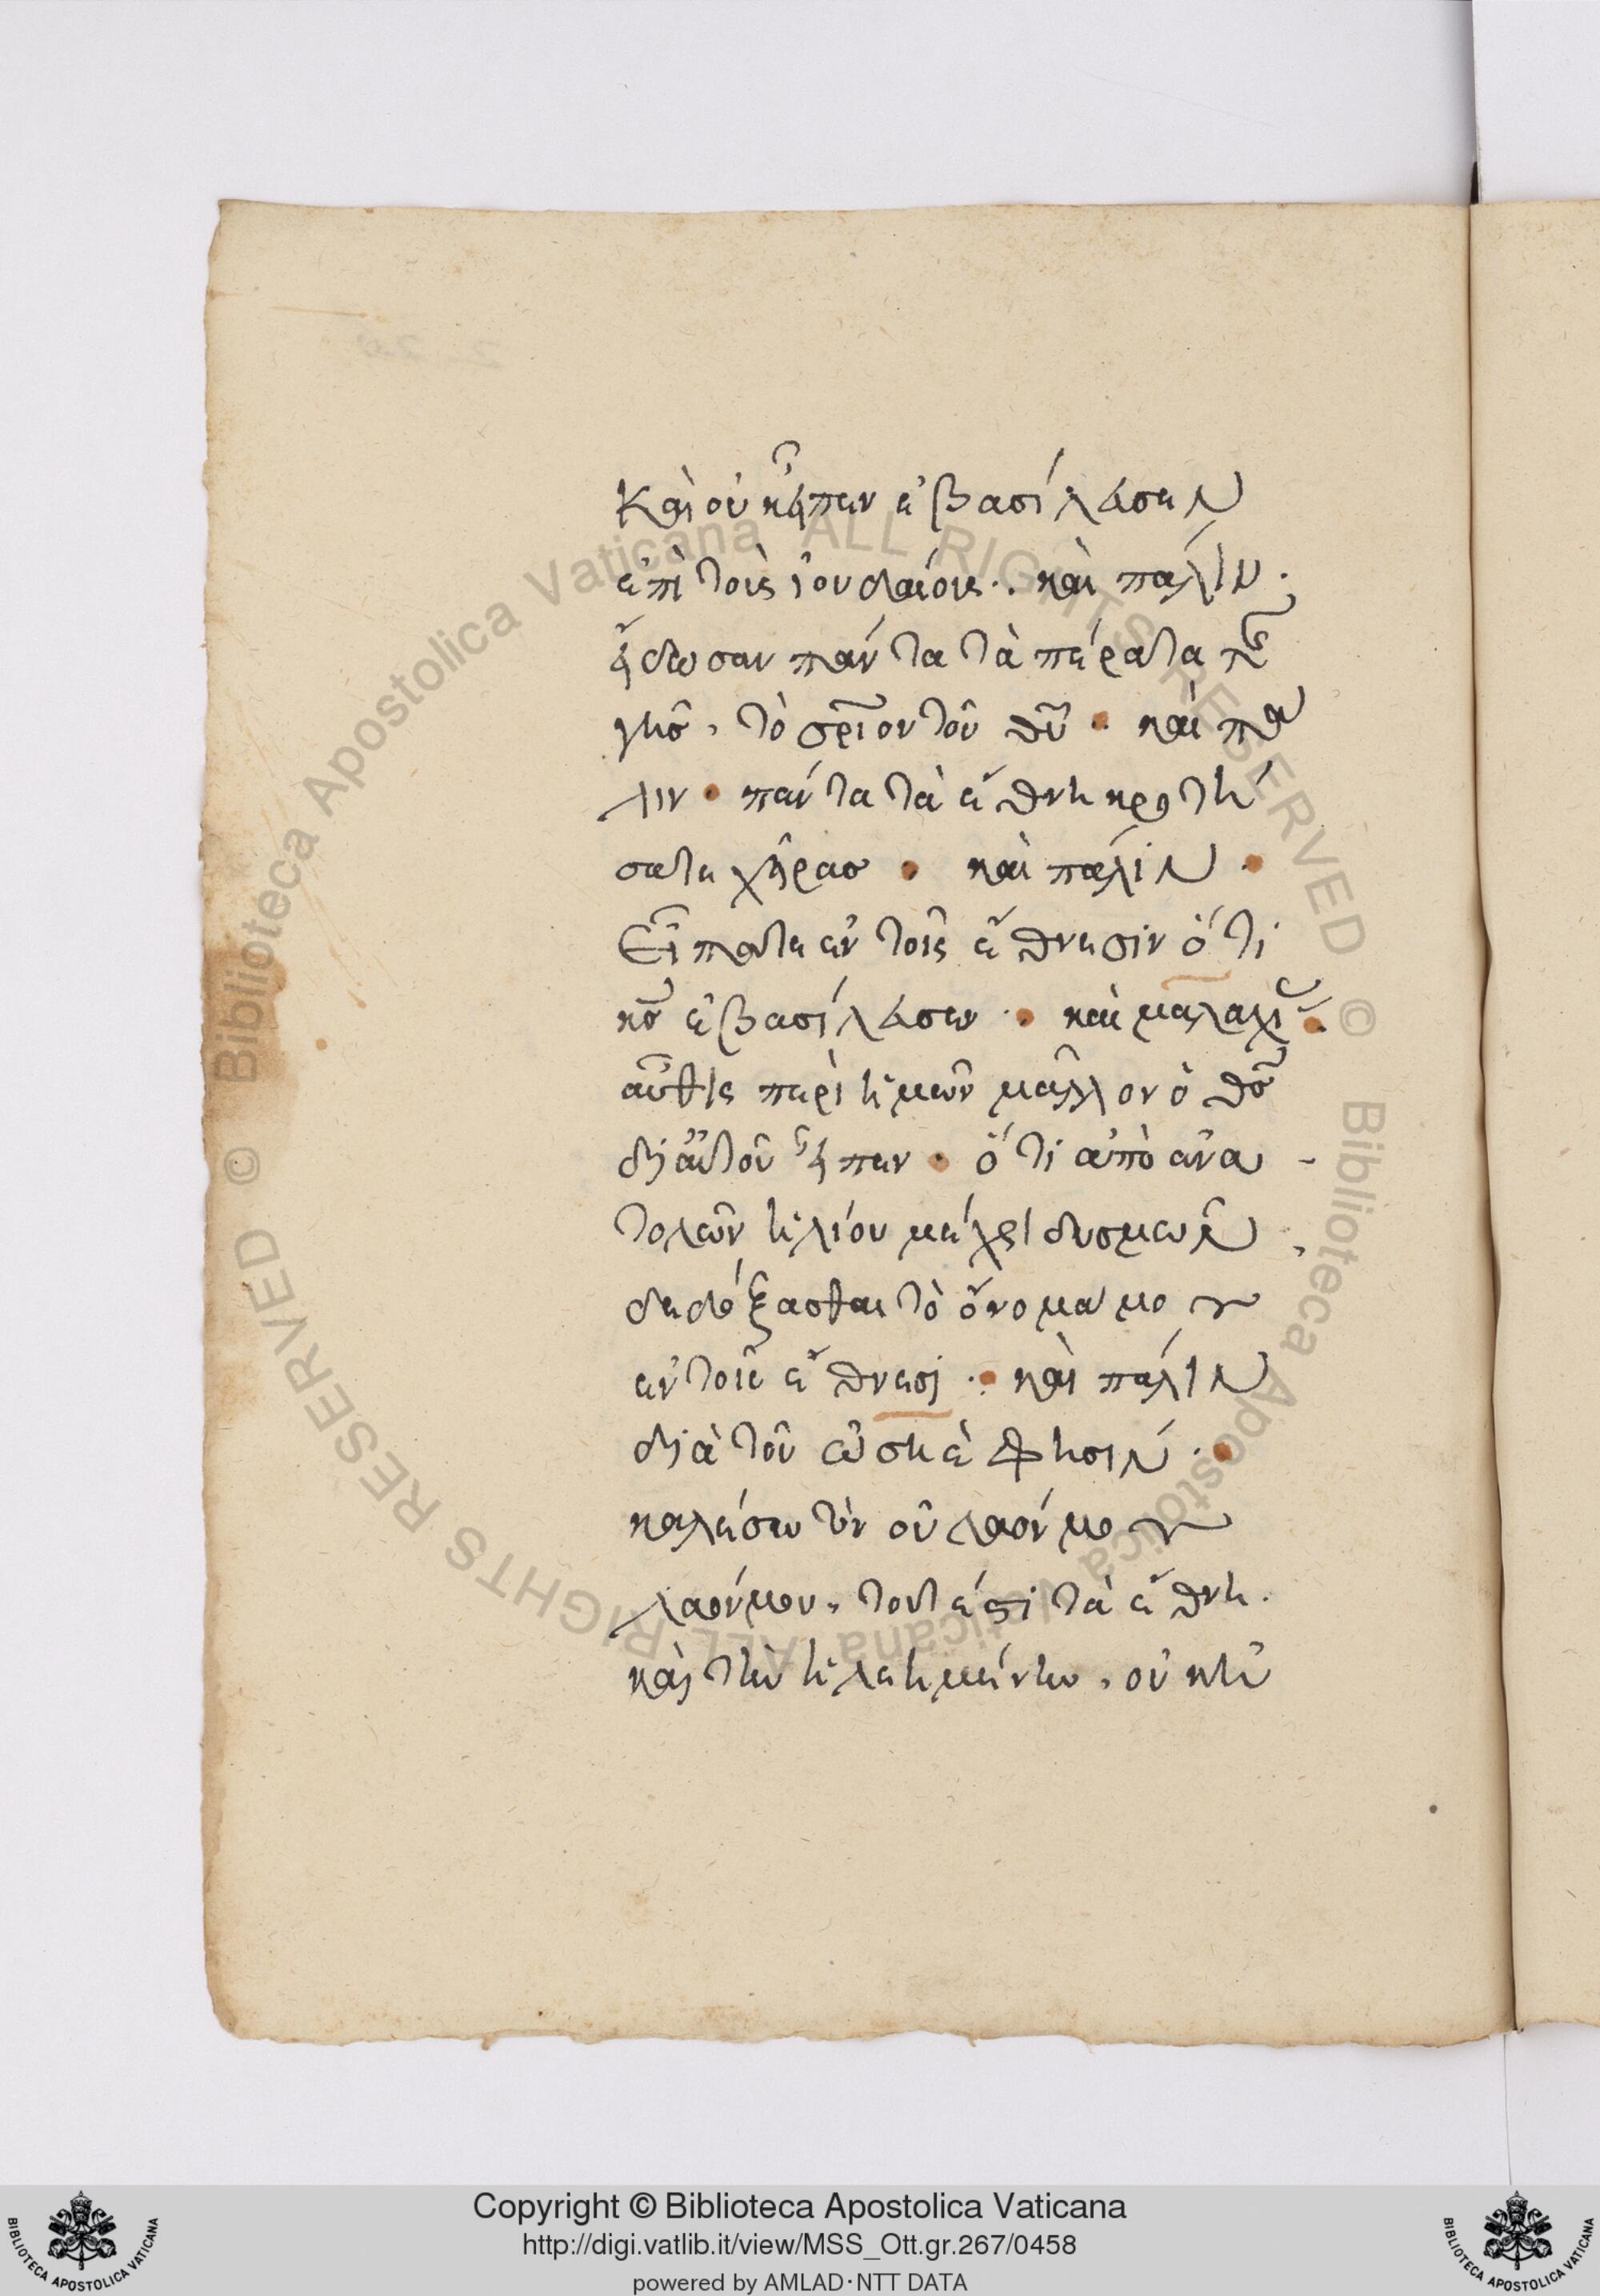 Καὶ οὐκ εἶπεν ἐβασίλευσεν
ἐπὶ τοῖς ἰουδαίοις · καὶ πάλιν ·
εἴδωσαν πάντα τὰ πέρατα τῆς
γῆσ, τὸ σρῖον τοῦ θῦ · καὶ πά
λιν · πάντα τὰ ἔθνη κροτή
σατε χεῖρασ · καὶ πάλιν ·
Εἴπατε ἐν τοῖς ἔθνεσιν ὅτι
κσ ἐβασίλευσεν · καὶ μαλαχί ·
αὖθις περὶ ἡμῶν μᾶλλον ὁ θσ
δι αὐτοῦ εἶπεν · ὅτι ἀπὸ ἀνα -
τολῶν ἡλίου μέχρι δυσμῶν,
δεδόξασται τὸ ὄνομα μου
ἐν τοῖς ἔθνεσι · καὶ πάλιν
διὰ τοῦ ὠσηὲ φησιν ·
καλέσω τὸν οὐ λαόν μου
λαόν μου, τουτέστι τὰ ἔθνη ·
καὶ τὴν ἠλεημένην, οὐκ ἠ
Copyright © Biblioteca Apostolica Vaticana
http://digi.vatlib.it/view/MSS_Ott.gr.267/0458
powered by AMLAD·NTT DATA
BIBLIOTECA APOSTOLICA VATICANA
BIBLIOTECA APOSTOLICA VATICANA
© Biblioteca Apostolica Vaticana ALL RIGHTS RESERVED
© Biblioteca Apostolica Vaticana ALL RIGHTS RESERVED